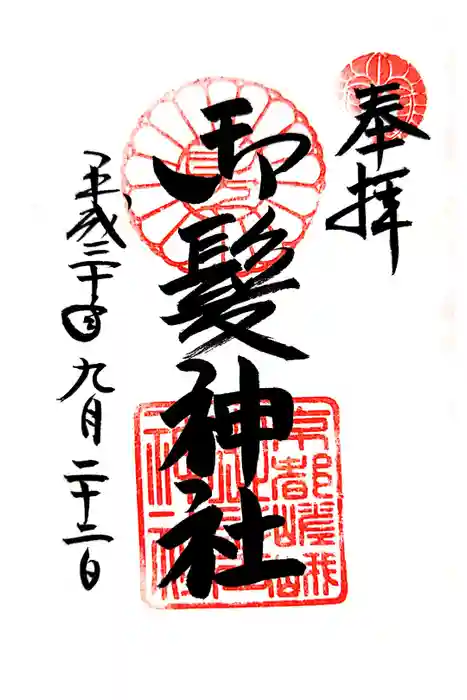 奉拝
御髪神社
平成三十年九月二十二日
京都嵯峨